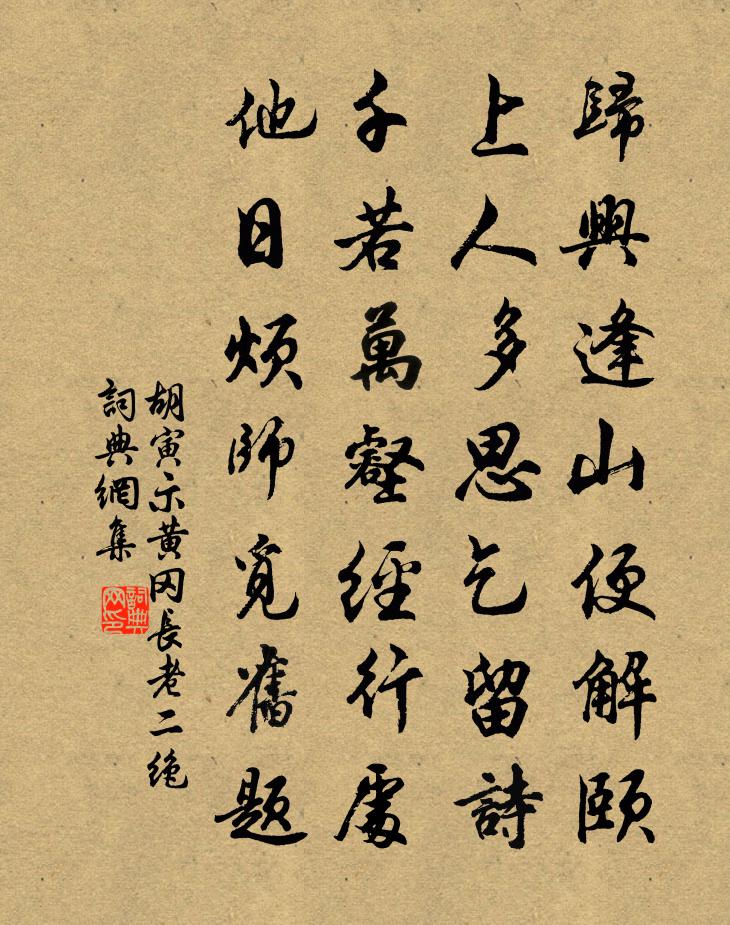 歸興逢山便解頤
上人多思乞留詩
千若萬壑經行處
他日煩師覓舊題
胡寅示黄冈長老二絶
詞典網集
詞典网印